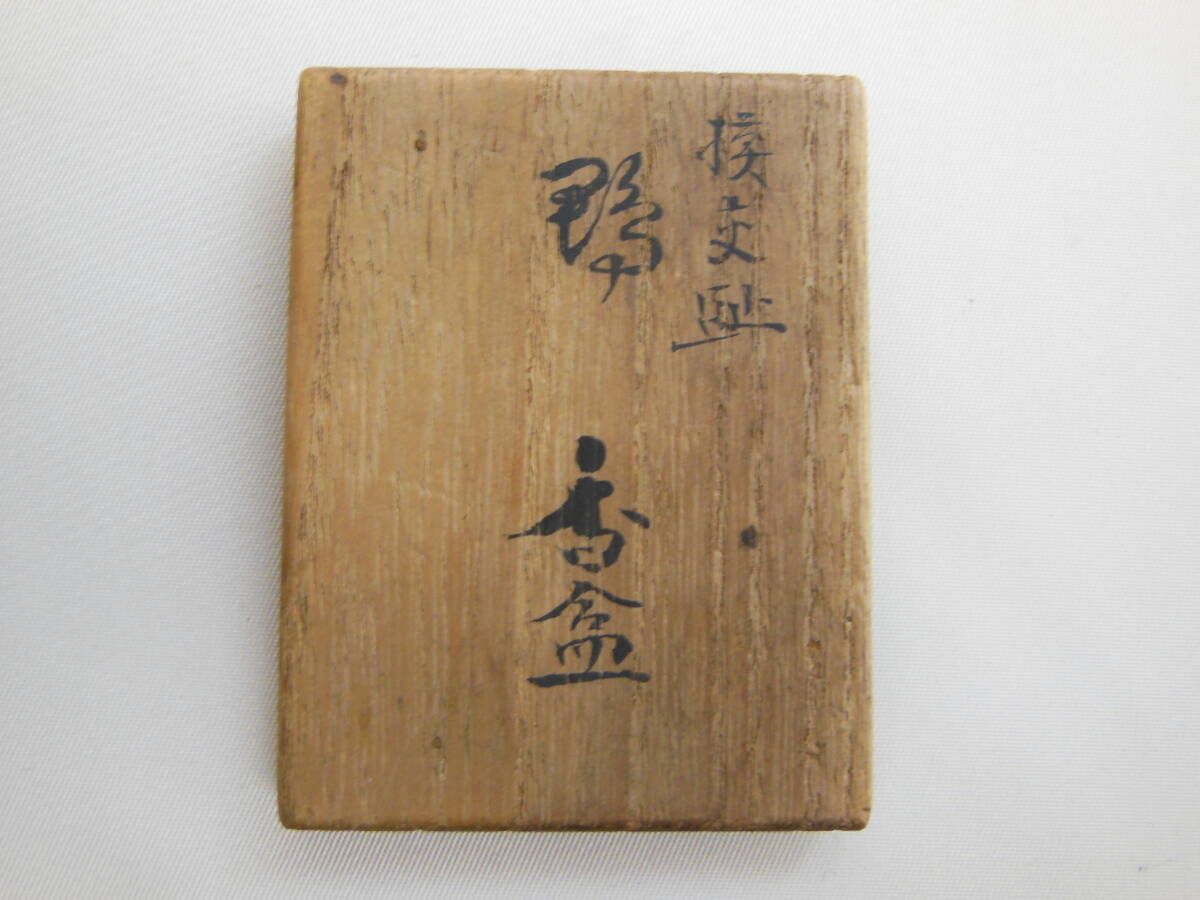 摸交趾
鴨香盒